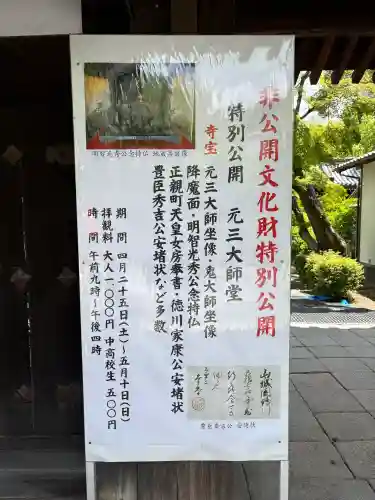 非公開文化財特別公開
特別公開　元三大師堂
寺宝　元三大師坐像・鬼大師坐像
降魔面・明智光秀公念持仏
正親町天皇女房奉書・徳川家康公安堵状
豊臣秀吉公安堵状など多数
期　間　四月二十五日（土）～五月十日（日）
拝観料　大人　一〇〇〇円　中高校生　五〇〇円
時　間　午前九時～午後四時
明智光秀公念持仏　地蔵菩薩像
豊臣秀吉公　安堵状